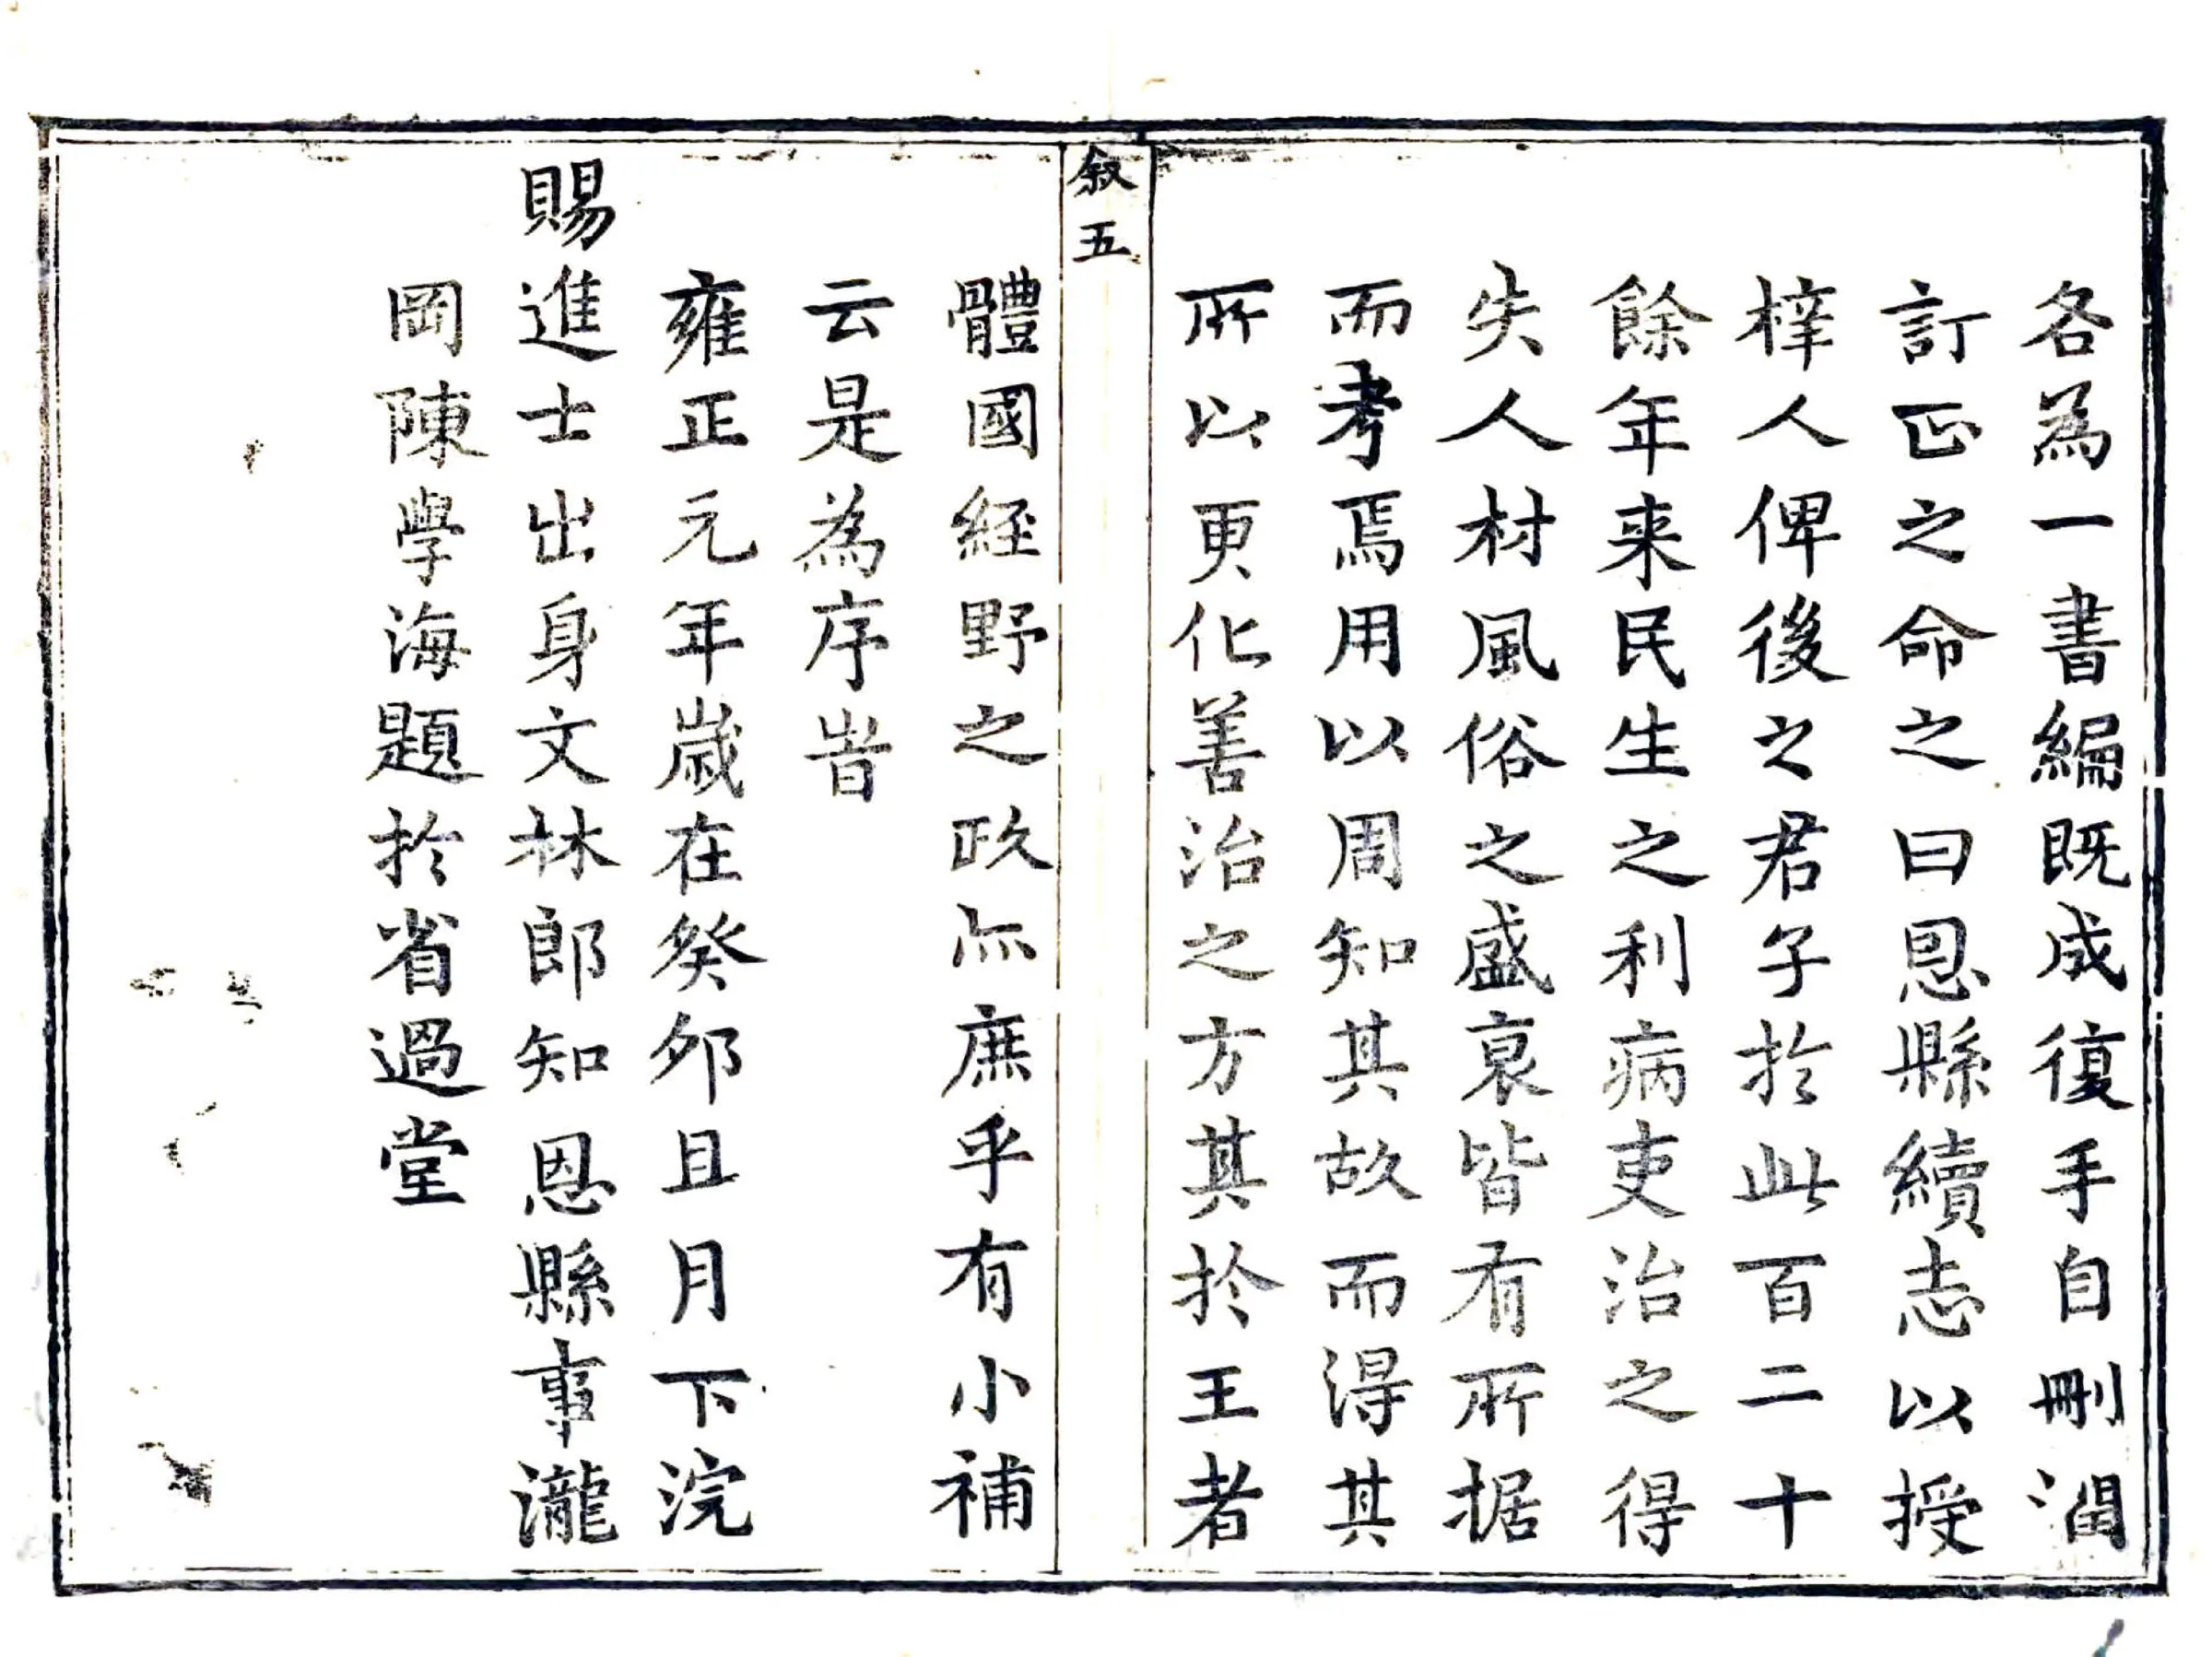 各為一書編既成復手自刪潤
訂正之命之曰恩縣續志以授
梓人俾後之君子於此百二十
餘年来民生之利病吏治之得
失人材風俗之盛衰皆有所据
而考焉用以周知其故而得其
所以更化善治之方其於王者
叙五
體國経野之政亦庶乎有小補
云是為序旹
雍正元年歲在癸夘且月下浣
賜進士出身文林郎知恩縣事瀧
岡陳學海題於省過堂